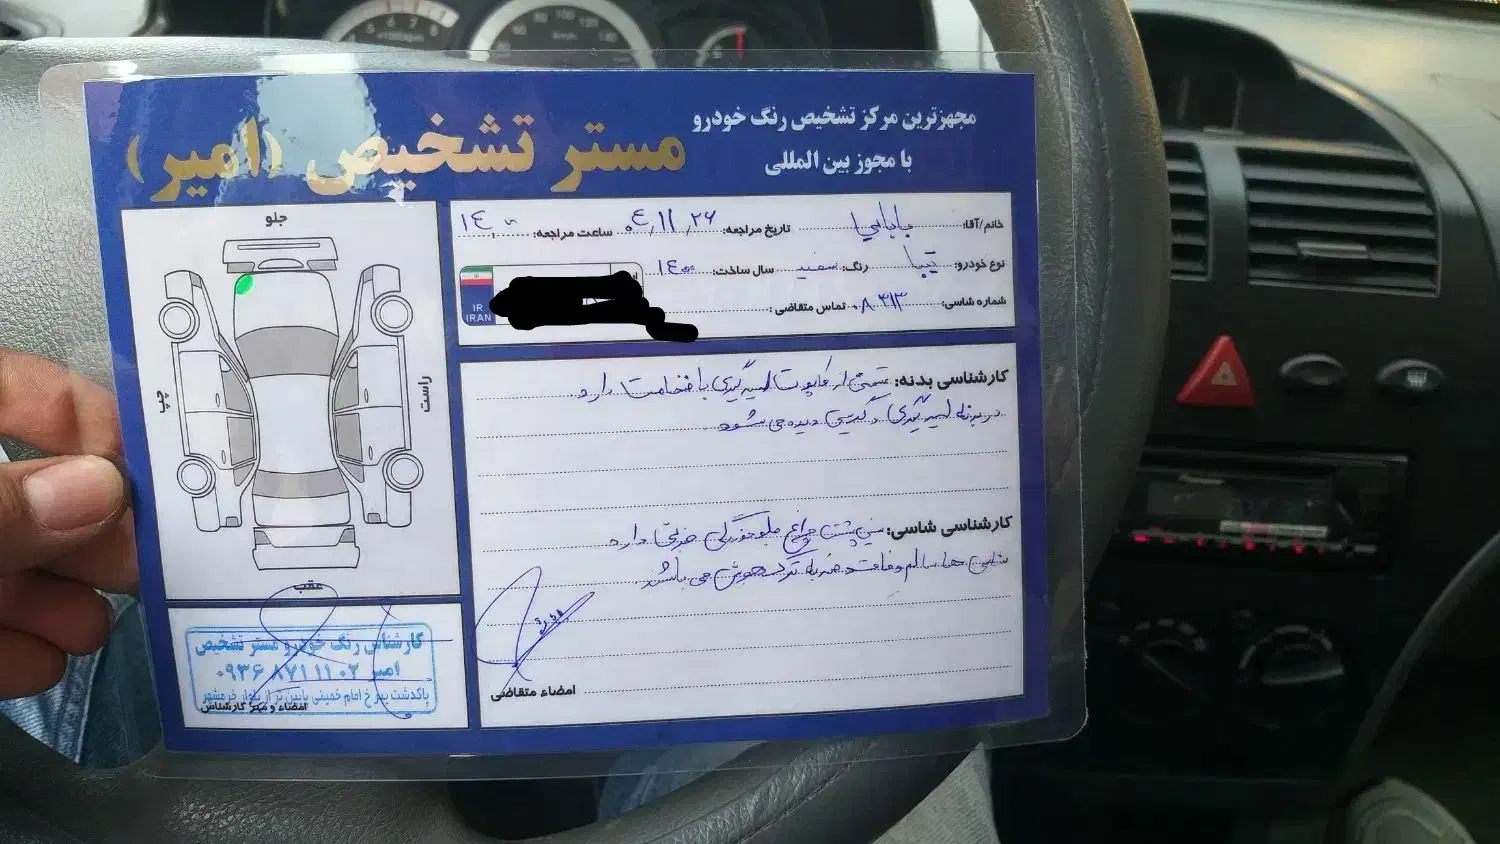 مجهزترین مرکز تشخیص رنگ خودرو
با مجوز بین المللی
مستر تشخیص (امیر)
خانم/آقا: بابایی تاریخ مراجعه: ۰۴,۱۱,۲۶ ساعت مراجعه: ۱۴:۰۰
نوع خودرو: تیبا رنگ: سفید سال ساخت: ۱۴۰۰
شماره شاسی: ۰۸۳۱۳ تماس متقاضی:
IR
IRAN
جلو
چپ
راست
عقب
کارشناسی بدنه: قسمتی از کاپوت لیسه گیری با ضخامت دارد
در بدنه لیسه گیری و دیده می شود
کارشناسی شاسی: سینی پشت چراغ جلو خوردگی جزئی دارد
شاسی ها سالم و فاقد ضربه جوش می باشند.
امضاء متقاضی
کارشناس رنگ خودرو مستر تشخیص
امیر ۰۹۳۶۸۷۱۱۱۰۲
پاکدشت امام خمینی پایین تر از بلوار خرمشهر
امضاء و مهر کارشناس